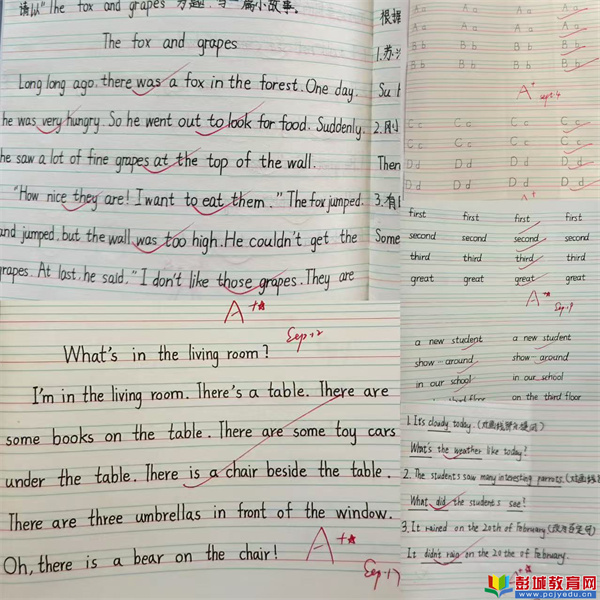 请以"The fox and grapes"为题,写一篇小故事。
The fox and grapes
Long long ago, there was a fox in the forest. One day.
he was very hungry. So he went out to look for food. Suddenly.
he saw a lot of fine grapes at the top of the wall.
"How nice they are! I want to eat them." The fox jumped.
and jumped, but the wall was too high. He couldn't get the
grapes. At last, he said, "I don't like those grapes. They are
A+
Sep.12
根据
1.苏
Su
2.刚
Then
3.有
Some
A a A a A a
A a A a A a
B b B b B b
B b B b B b
A+
Sep.4
C c C c C c
C c C c C c
D d D d D d
D d D d D d
A+
first first first first
second second second second
third third third third
great great great great
A+
Sep.9
a new student a new student
show around show around
in our school in our school
third floor on the third floor
What's in the living room?
I'm in the living room. There's a table. There are
some books on the table. There are some toy cars
under the table. There is a chair beside the table.
There are three umbrellas in front of the window.
Oh, there is a bear on the chair!
A+
Sep.17
1. It's cloudy today.
What's the weather like today?
2. The students saw many interesting parrots.
What did the students see?
3. It rained on the 20th of February.
It didn't rain on the 20 the of February.
彭城教育网
www.pcjyedu.cn